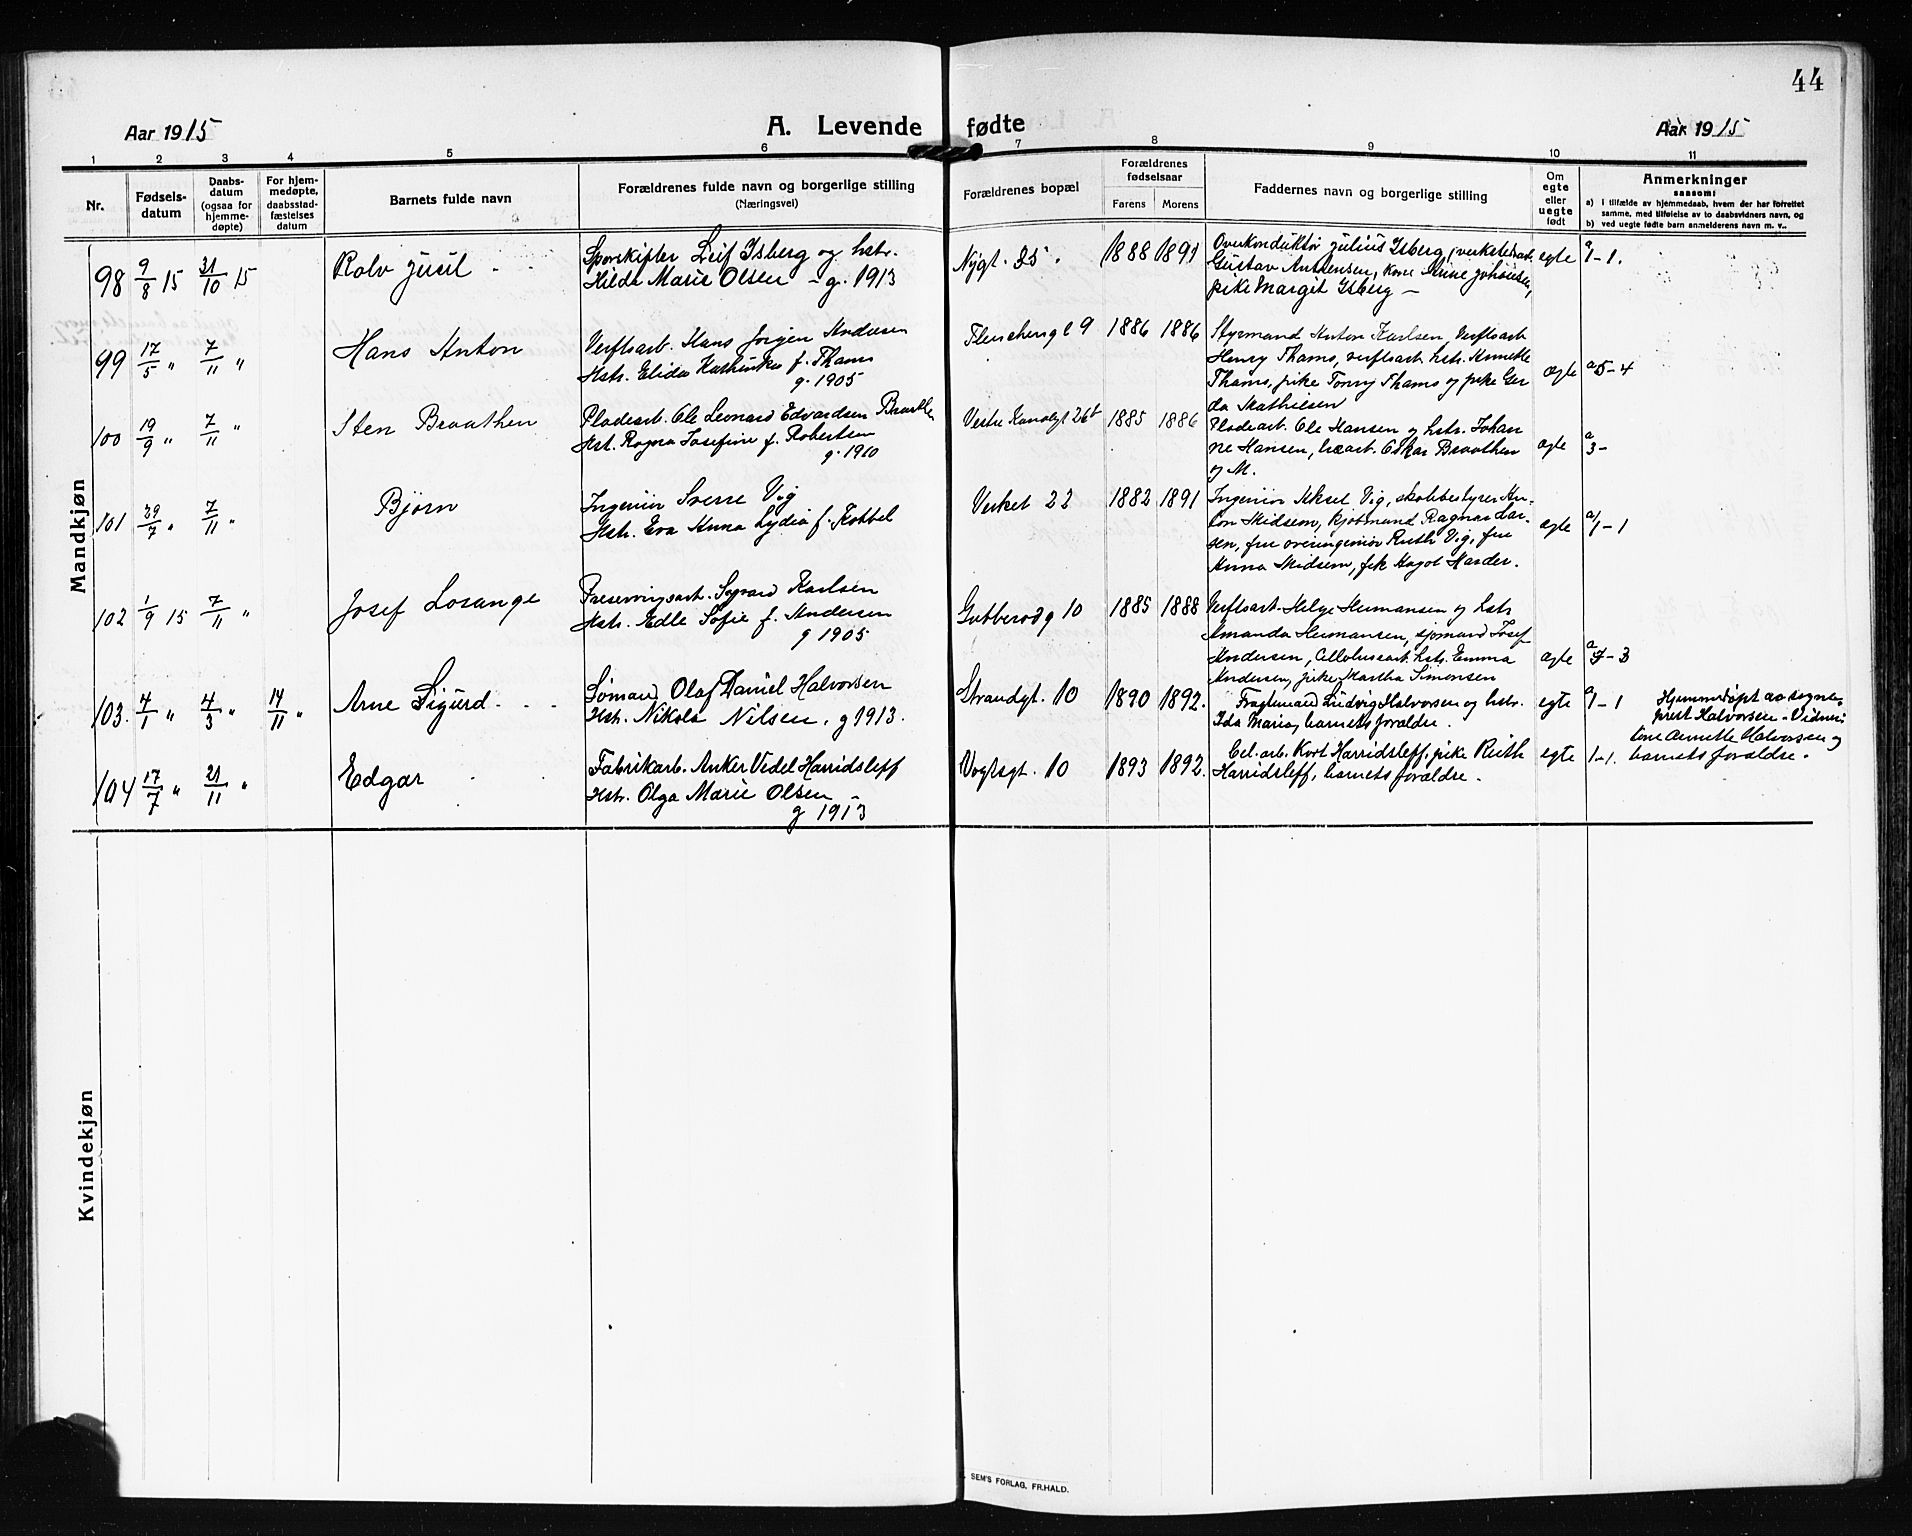 44
Aar 1915
A. Levende fødte
Aar 1915
1 2 3 4 5 6 7 8 9 10 11
Nr.
Fødsels-
datum
Daabs-
datum
(ogsaa for
hjemme-
døpte)
For hjem-
medøpte,
daabsstad-
fæstelses
datum
Barnets fulde navn
Forældrenes fulde navn og borgerlige stilling
(Næringsvei)
Forældrenes bopæl
Forældrenes
fødselsaar
Farens Morens
Faddernes navn og borgerlige stilling
Om
egte
eller
uegte
født
Anmerkninger
saasom:
a) i tilfælde av hjemmedaab, hvem der har forrettet
samme, med tilføielse av to daabsvidners navn, og
b) ved uegte fødte barn anmelderens navn m. v..
Mandkjøn
98 9/8 15 31/10 15
Rolv Juul
Sporskifter Leif Isberg og hstr.
Hilda Marie Olsen - g. 1913
Nygt. 35.
1888 1891
Overkonduktør Julius Isberg,
Gustav Antensen, kone Anne Johansen,
pike Margit Isberg -
egte
a/1-1.
99 17/5 " 7/11 "
Hans Anton
Verftsarb. Hans Jørgen Andersen
Hstr. Elida Kathinka f. Thams
g. 1905
9
1886 1886
Styrmand Anton Karlsen, Verftsarb
Henry Thams, verftsarb. hstr. Annette
Thams, pike Tonny Thams og pike Ger
da Mathiesen
egte
a/5-4
100 19/9 " 7/11 "
Sten Braathen
Pladearb. Ole Leonard Edvardsen Braathen
Hst. Ragna Josefine f. Robertsen
g. 1910
Vestre Kanalgt 26b
1885 1886
Pladearb. Ole Hansen og hstr. Johan
ne Hansen, Oskar Braathen
og M.
egte
a/3-
101 29/7 " 7/11 "
Bjørn
Ingeniør Sverre Vig
Hstr. Eva Anna Lydia f. Kobbel
Verket 22
1882 1891
Ingeniør Aksel Vig, skolebestyrer An-
ton Midsem, kjøbmand Ragnar Lar-
sen, frue overingeniør Ruth Vig, frue
Anna Midsem, frk Harder.
egte
a/1-1
102 1/9 15 7/11 "
Josef Losange
Preservingsarb. Sigvard Karlsen
Hstr. Edle Sofie f. Andersen
g 1905
Gubberodg 10
1885 1888
Verftsarb. Helge Hermansen og hstr
Amanda Hermansen, sjømand Josef
Andersen, Cellulosearb. hstr. Emma
Andersen, pike Martha Simonsen
egte
a/7-3
103. 4/1 " 4/3 " 14/11 "
Arne Sigurd
Sømand Olaf Daniel Halvorsen
Hstr. Nikola Nilsen. g 1913.
Strandgt. 10
1890 1892.
Fragtemand Ludvig Halvorsen og hstr.
Ida Maria, barnets forældre.
egte
a/1-1
Hjemmedøpt av sogne-
prest Halvorsen - Vidner:
Annette Halvorsen og
barnets forældre.
104 17/7 " 21/11 "
Edgar
Fabrikarb. Anker Vedel Harridsleff
Hstr. Olga Marie Olsen
g 1913
Vogtsgt. 10
1893 1892.
Cel. arb. Kort Harridsleff, pike Ruth
Harridsleff, barnets forældre.
egte
1-1.
Kvindekjøn
SEM'S FORLAG, FR.HALD.